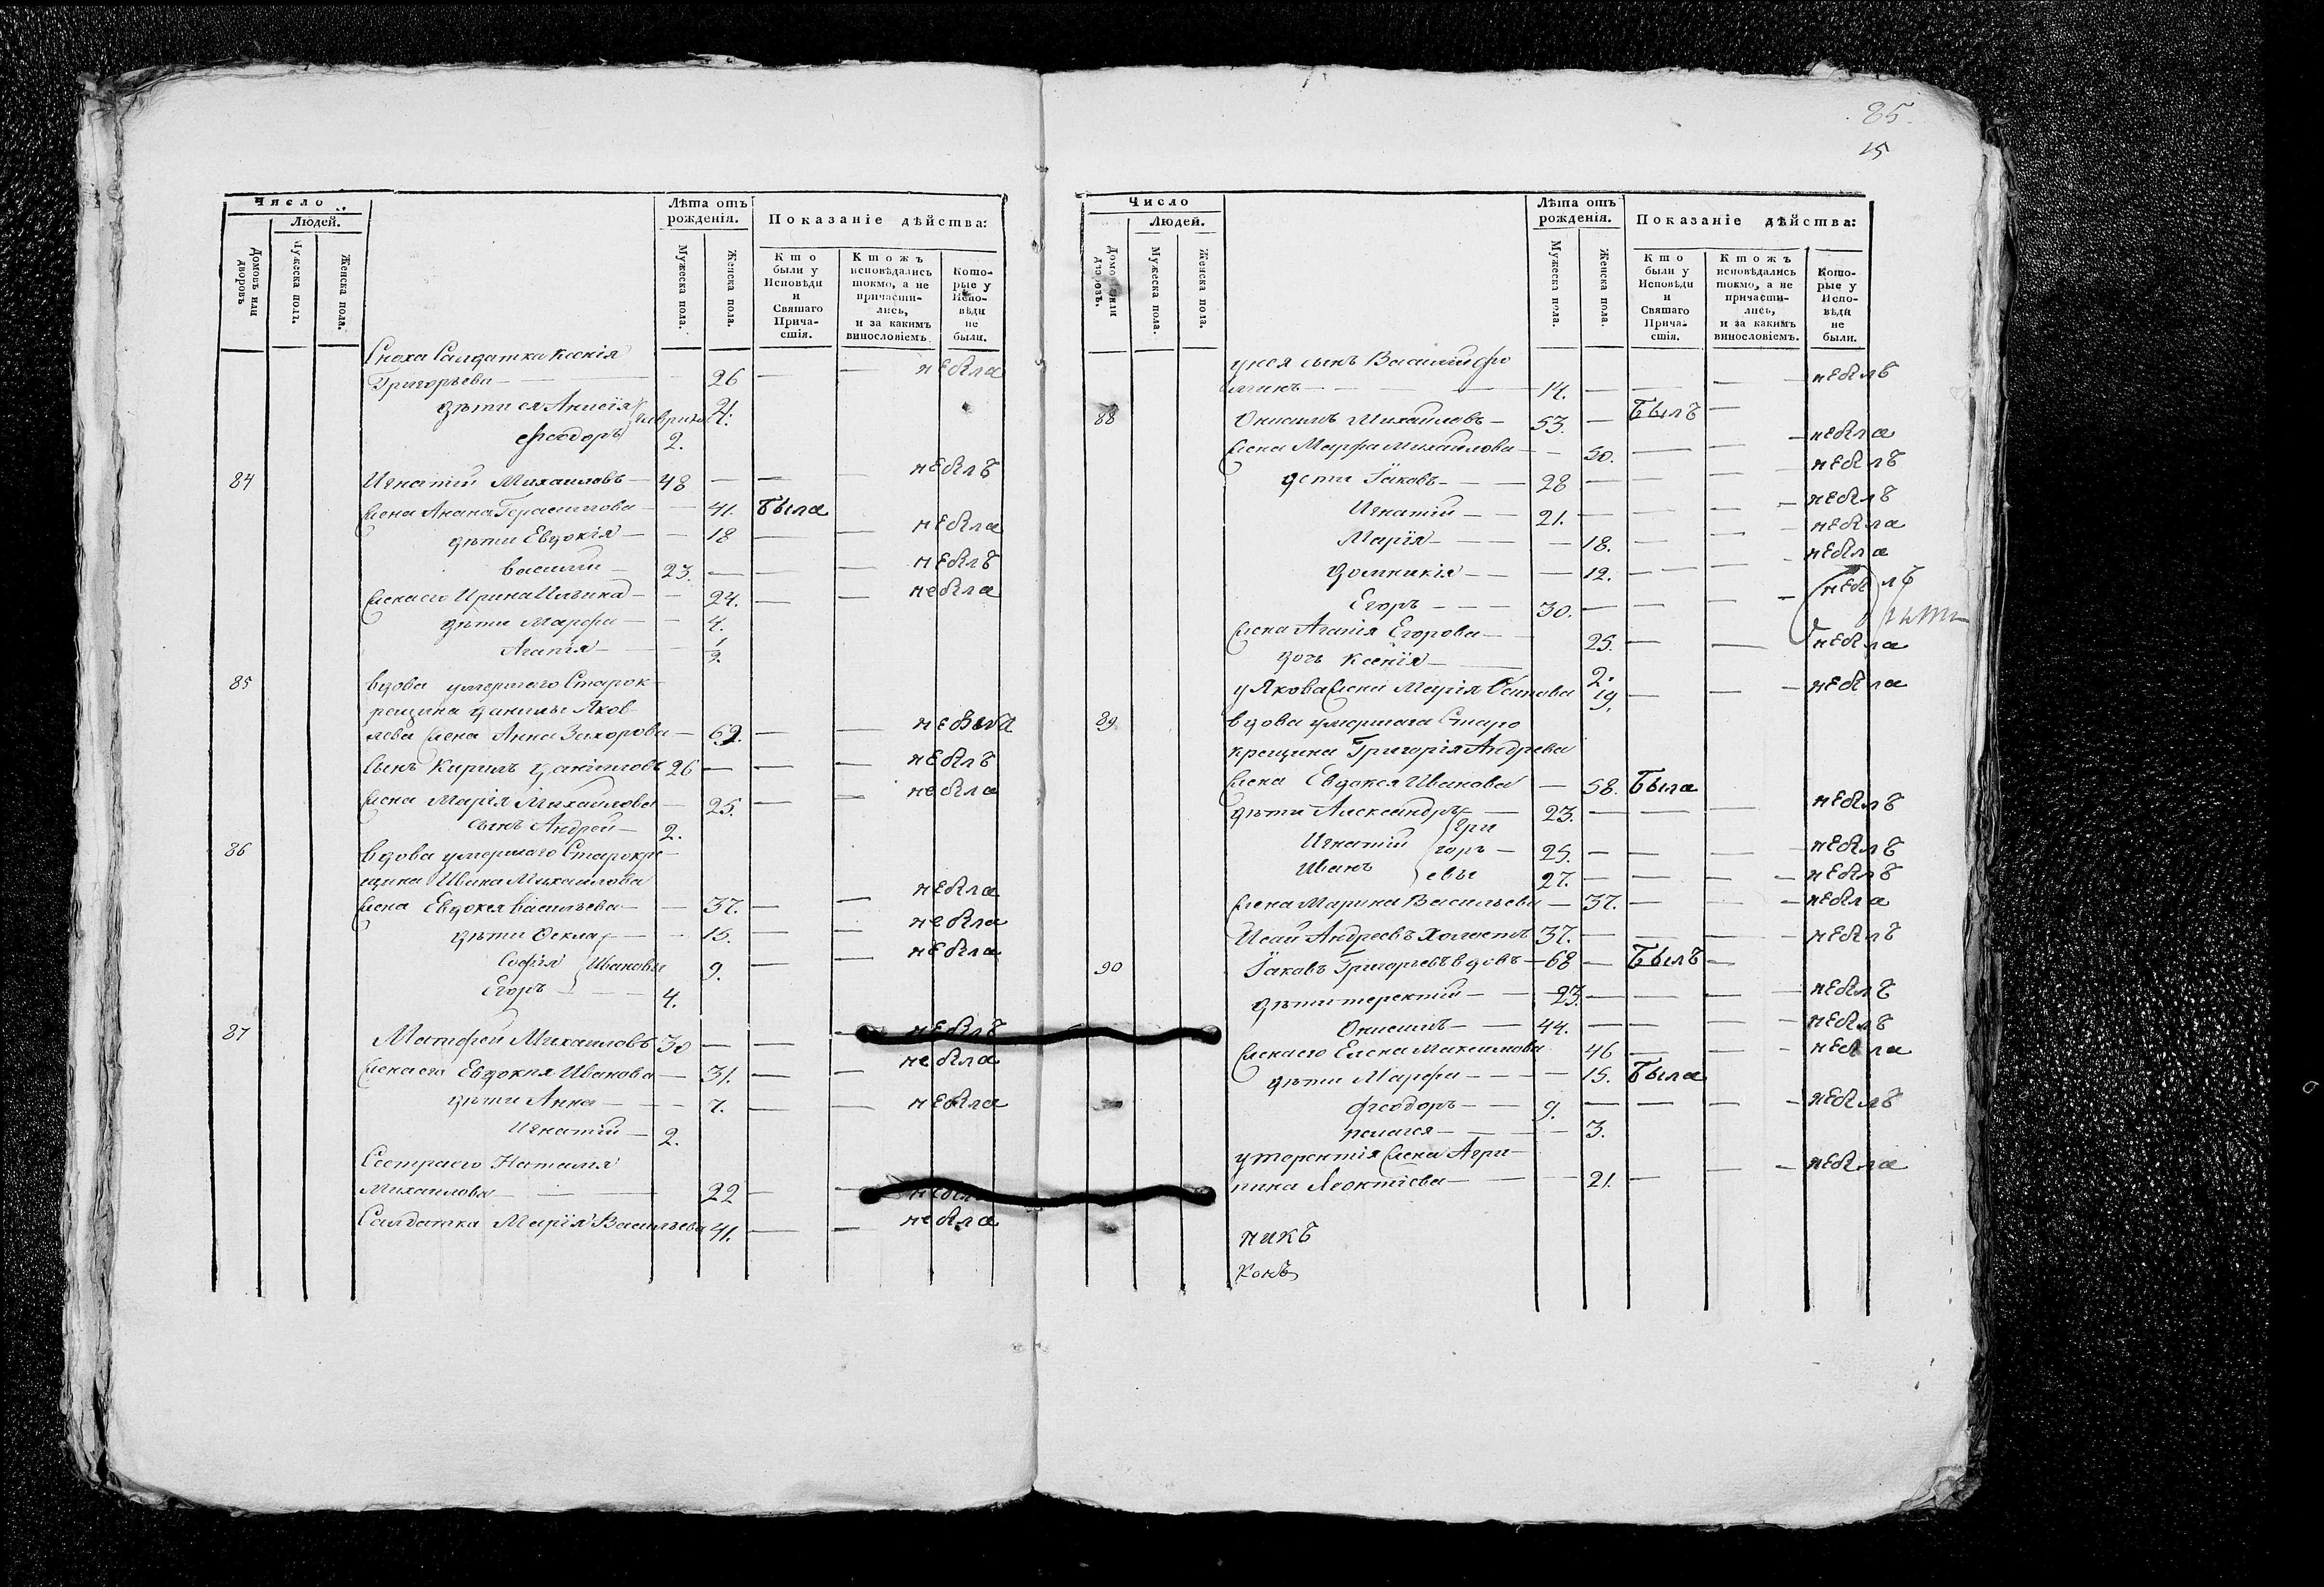 Число
Людей.
Домовъ или дворовъ
Мужеска пола.
Женска пола.
Лѣта отъ рожденія.
Мужеска пола.
Женска пола.
Показаніе дѣйства:
Кто были у Исповѣди и Святаго Прича-стія.
Ктожъ исповѣдались токмо, а не причасти-лись, и за какимъ винословіемъ
Кото-рые у Испо-вѣди не были.
Сноха Салдатка Ксенія
Григорьева — 26 — — небыла
дѣти ея Анисія 4.
Феодоръ 2.
84 Игнатій Михаиловъ — 48 — — — небылъ
жена Анна Герасимова — — 41. Была
дѣти Евдокія — — 18 — — небыла
Василій — 23. — — — небылъ
жена его Ирина Ильина — — 24. — — небыла
дѣти Марфа — — 4.
Агапія — — 1/2.
85 вдова умершаго Старок-
рещина Данилы Яков-
лева жена Анна Захорова — 62. — — небыла
сынъ Кирилъ Даниловъ 26 — — — небылъ
жена Марія Михайлова — 25. — — небыла
сынъ Андрей — 2.
86 вдова умершаго Старокре-
щина Ивана Михаилова
жена Евдокея Васильева — — 37. — — небыла
дѣти Фекла — — 15. — — небыла
Софія Ивановы 9. — — небыла
Егоръ — — 4.
87 Матфей Михаиловъ 30 — — — небылъ
жена его Евдокия Иванова — 31. — — небыла
дѣти Анна — — 7. — — небыла
Игнатій — 2.
Сестра его Наталія
Михаилова — — 22 — — небыла
Салдатка Марія Васильева 41. — — небыла
85.
15
Число
Людей.
Домовъ или дворовъ.
Мужеска пола.
Женска пола.
Лѣта отъ рожденія.
Мужеска пола.
Женска пола.
Показаніе дѣйства:
Кто были у Исповѣди и Святаго Прича-стія.
Ктожъ исповѣдались токмо, а не причасти-лись, и за какимъ винословіемъ.
Кото-рые у Испо-вѣди не были.
у нея сынъ Василий
14. — — — небылъ
88 Онисимъ Михайловъ — 53. — Былъ —
жена Марфа Михайлова — — 50. — — — небыла
дети Іаковъ — — 28 — — — небылъ
Игнатій — — 21. — — — небылъ
Марія — — — 18. — — — небыла
Домникія — — — 12. — — — небыла
Егоръ — — — 30. — — — небылъ
жена Агапія Егорова — 25. — небыла
дочь Ксенія — 2.
у Якова жена Марія Осипова 19. — — — небыла
89 вдова умершага Старо
крещина Григорія Андреева
жена Евдокея Иванова — 58. Была
дѣти Александръ — 23. — — — небылъ
Игнатій Григорь — 25. — — — небылъ
Иванъ евы 27. — — — небылъ
жена Марина Васильева — 37. — — — небыла
Исай Андреевъ холостъ 37. — — — небылъ
90 Іаковъ Григорьевъ вдовъ — 68 — Былъ —
дѣти терентій — — 23. — — — небылъ
Онисимъ — — 44. — — — небылъ
жена его Елена Максимова 46 — — — небыла
дѣти Марфа — — — — 15. Была
Феодоръ — — 9. — — — — небылъ
пелагея — — — 3.
у терентія жена Агри-
пина Леонтіева — — — 21. — — — небыла
никъ
конъ